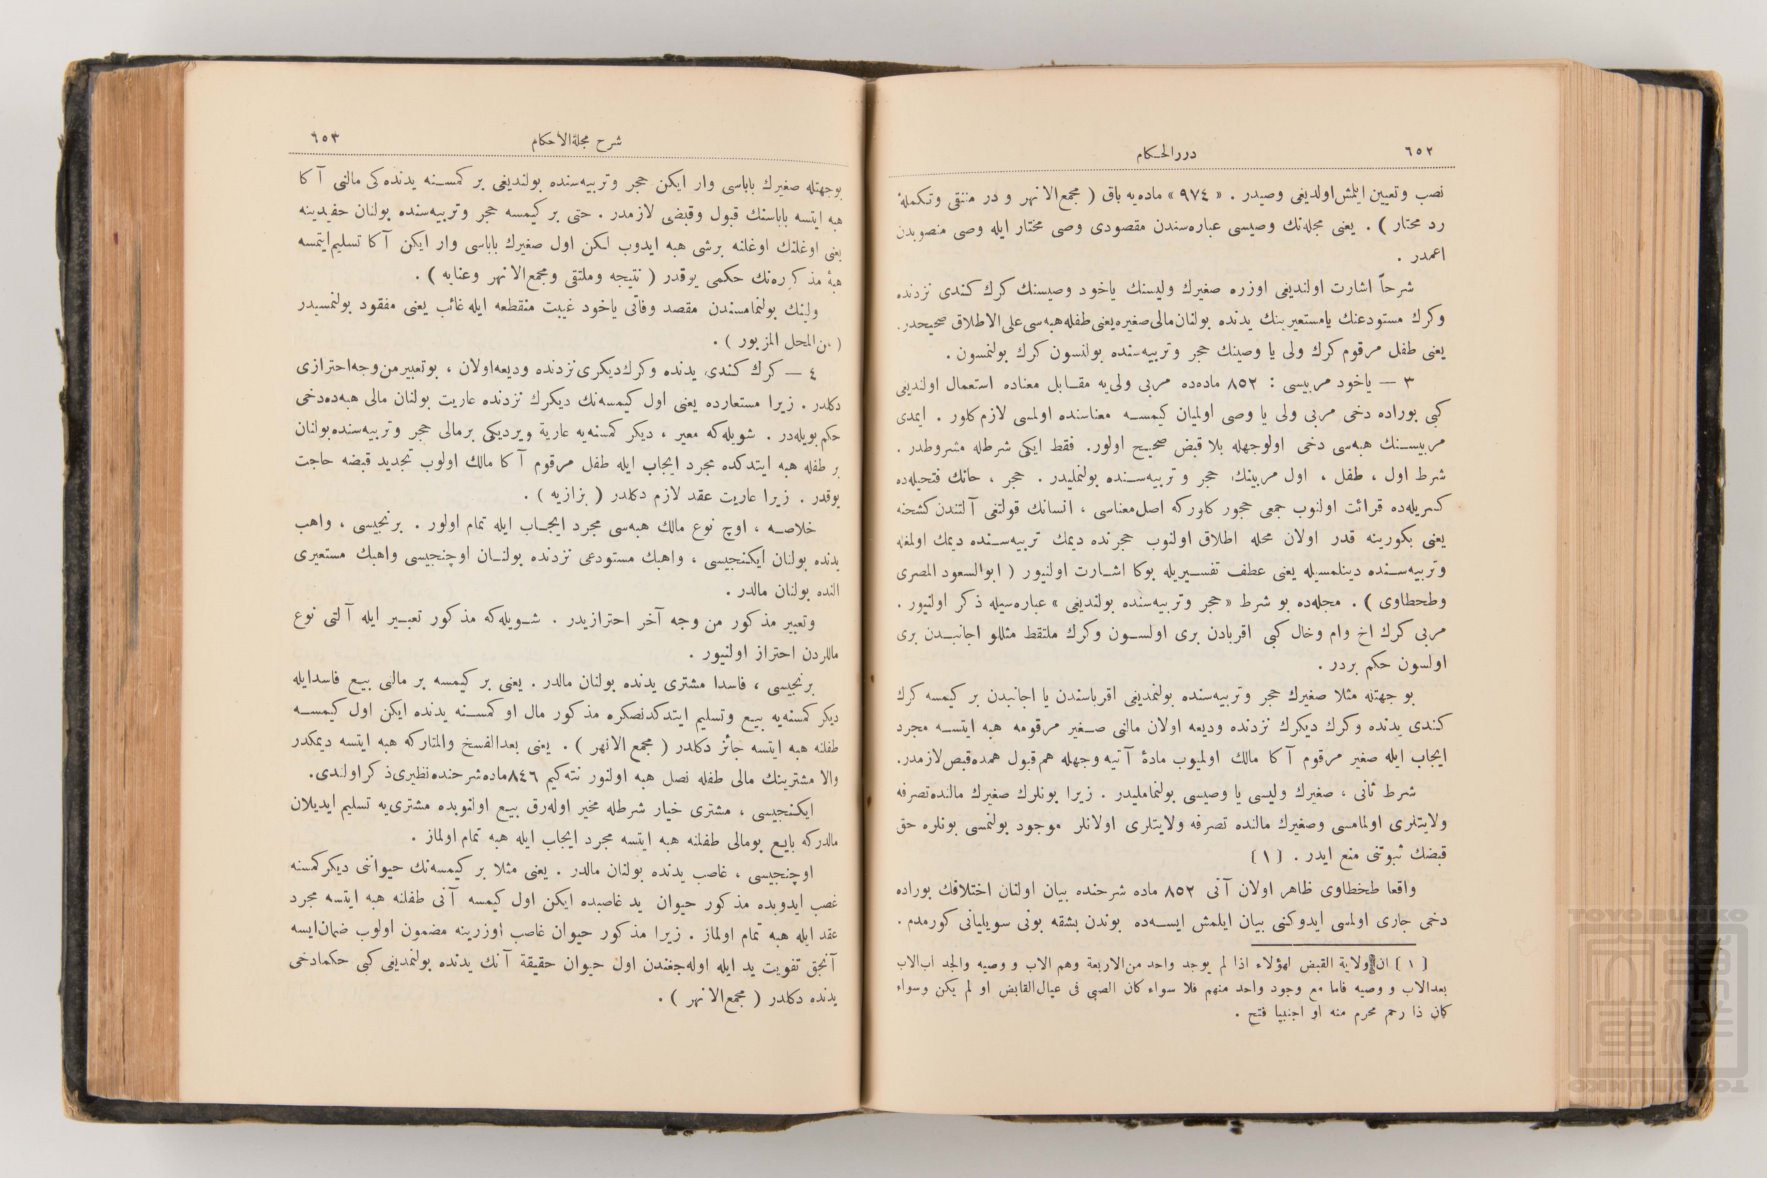 ٦٥٢
دررالحكام
نصب وتعيين ايلمش اولديغى وصيدر . « ٩٧٤ » ماده‌يه باق ( مجمع‌الانهر و در منتقى وتكملۀ
رد مختار ) . يعنى مجله‌نك وصيسى عباره‌سندن مقصودى وصى مختار ايله وصى منصوبدن
اعمدر .
شرحاً اشارت اولنديغى اوزره صغيرك وليسنك ياخود وصيسنك كرك كندى نزدنده
وكرك مستودعنك يامستعيربنك يدنده بولنان‌مالى صغيره يعنى طفله هبه‌سى على‌الاطلاق صحيحدر.
يعنى طفل مرقوم كرك ولى يا وصينك حجر وتربيه‌سنده بولنسون كرك بولنمسون .
٣ — ياخود مربيسى : ٨٥٢ ماده‌ده مربى ولى‌يه مقابل معناده استعمال اولنديغى
كبى بوراده دخى مربى ولى يا وصى اولميان كيمسه معناسنده اولمسى لازم كلور . ايمدى
مربيسنك هبه‌سى دخى اولوجهله بلا قبض صحيح اولور. فقط ايكى شرطله مشروطدر .
شرط اول ، طفل ، اول مربينك حجر و تربيه‌سنده بولنمليدر . حجر ، حانك فتحيله‌ده
كسريله‌ده قرائت اولنوب جمعى حجور كلوركه اصل‌معناسى ، انسانك قولتغى آلتندن كشحنه
يعنى بكورينه قدر اولان محله اطلاق اولنوب حجرنده ديمك تربيه‌سنده ديمك اولمغله
وتربيه‌سنده دينلمسيله يعنى عطف تفسيريله بوكا اشارت اولنيور ( ابوالسعود المصرى
وطحطاوى ) . مجله‌ده بو شرط « حجر وتربيه‌سنده بولنديغى » عباره‌سيله ذكر اولنيور .
مربى كرك اخ وام وخال كبى اقربادن برى اولسون وكرك ملتقط مثللو اجانبدن برى
اولسون حكم بردر .
بو جهتله مثلا صغيرك حجر وتربيه‌سنده بولنمديغى اقرباسندن يا اجانبدن بر كيمسه كرك
كندى يدنده وكرك ديكرك نزدنده وديعه اولان مالنى صغير مرقومه هبه ايتسه مجرد
ايجاب ايله صغير مرقوم آكا مالك اولميوب مادۀ آتيه وجهله هم‌قبول همده‌قبض‌لازمدر.
شرط ثانى ، صغيرك وليسى يا وصيسى بولنمامليدر . زيرا بونلرك صغيرك مالنده‌تصرفه
ولايتلرى اولمامسى وصغيرك مالنده تصرفه ولايتلرى اولانلر موجود بولنمسى بونلره حق
قبضك ثبوتنى منع ايدر . (١)
واقعا طحطاوى ظاهر اولان آنى ٨٥٢ ماده شرحنده بيان اولنان اختلافك بوراده
دخى جارى اولمسى ايدوكنى بيان ايلمش ايسه‌ده بوندن بشقه بونى سويليانى كورمدم .
(١) ان ولاية القبض لهؤلاء اذا لم يوجد واحد من‌الاربعة وهم الاب و وصيه والجد اب‌الاب
بعدالاب و وصيه فاما مع وجود واحد منهم فلا سواء كان الصبى فى عيال‌القابض او لم يكن وسواء
كان ذا رحم محرم منه او اجنبيا فتح .
شرح مجلة‌الاحكام
٦٥٣
بوجهتله صغيرك باباسى وار ايكن حجر وتربيه‌سنده بولنديغى بر كمسنه يدنده‌كى مالنى آكا
هبه ايتسه باباسنك قبول وقبضى لازمدر . حتى بر كيمسه حجر وتربيه‌سنده بولنان حفيدينه
يعنى اوغلنك اوغلنه برشى هبه ايدوب لكن اول صغيرك باباسى وار ايكن آكا تسليم ايتمسه
هبۀ مذكوره‌نك حكمى يوقدر ( نتيجه وملتقى ومجمع‌الانهر وعنايه ) .
ولينك بولنمامسندن مقصد وفاتى ياخود غيبت منقطعه ايله غائب يعنى مفقود بولنمسيدر
( من‌المحل المزبور ) .
٤ — كرك كندى يدنده وكرك‌ديكرى نزدنده وديعه‌اولان ، بوتعبيرمن‌وجه‌احترازى
دكلدر . زيرا مستعارده يعنى اول كيمسه‌نك ديكرك نزدنده عاريت بولنان مالى هبه‌ده‌دخى
حكم بويله‌در . شويله‌كه معير ، ديكر كمسنه‌يه عارية ويرديكى برمالى حجر وتربيه‌سنده‌بولنان
بر طفله هبه ايتدكده مجرد ايجاب ايله طفل مرقوم آكا مالك اولوب تجديد قبضه حاجت
يوقدر . زيرا عاريت عقد لازم دكلدر ( بزازيه ) .
خلاصه ، اوچ نوع مالك هبه‌سى مجرد ايجاب ايله تمام اولور . برنجيسى ، واهب
يدنده بولنان ايكنجيسى ، واهبك مستودعى نزدنده بولنان اوچنجيسى واهبك مستعيرى
النده بولنان مالدر .
وتعبير مذكور من وجه آخر احترازيدر . شويله‌كه مذكور تعبير ايله آلتى نوع
مالدن احتراز اولنيور .
برنجيسى ، فاسدا مشترى يدنده بولنان مالدر . يعنى بر كيمسه بر مالنى بيع فاسدايله
ديكر كمسنه‌يه بيع وتسليم ايتدكدنصكره مذكور مال او كمسنه يدنده ايكن اول كيمسه
طفلنه هبه ايتسه جائز دكلدر ( مجمع الانهر ) . يعنى بعدالفسخ والمتاركه هبه ايتسه ديمكدر
والا مشترينك مالى طفله نصل هبه اولنور نته‌كيم ٨٤٦ماده‌شرحنده‌نظيرى‌ذكراولندى.
ايكنجيسى ، مشترى خيار شرطله مخير اوله‌رق بيع اولنوبده مشترى‌يه تسليم ايديلان
مالدركه بايع بومالى طفلنه هبه ايتسه مجرد ايجاب ايله هبه تمام اولماز .
اوچنجيسى ، غاصب يدنده بولنان مالدر . يعنى مثلا بر كيمسه‌نك حيواننى ديكركمسنه
غصب ايدوبده مذكور حيوان يد غاصبده ايكن اول كيمسه آنى طفلنه هبه ايتسه مجرد
عقد ايله هبه تمام اولماز . زيرا مذكور حيوان غاصب اوزرينه مضمون اولوب ضمان‌ايسه
آنجق تفويت يد ايله اوله‌جغندن اول حيوان حقيقة آنك يدنده بولنمديغى كبى حكمادخى
يدنده دكلدر ( مجمع‌الانهر ) .
TOYO BUNKO